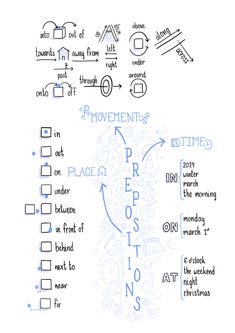 into out of
above
along
towards away from
left
right
under
across
past
onto off
through
around
MOVEMENT
TIME
PLACE
PREPOSITIONS
in
out
on
under
between
in front of
behind
next to
near
far
IN
2024
winter
march
the morning
ON
monday
march 1st
AT
6 o'clock
the weekend
night
christmas